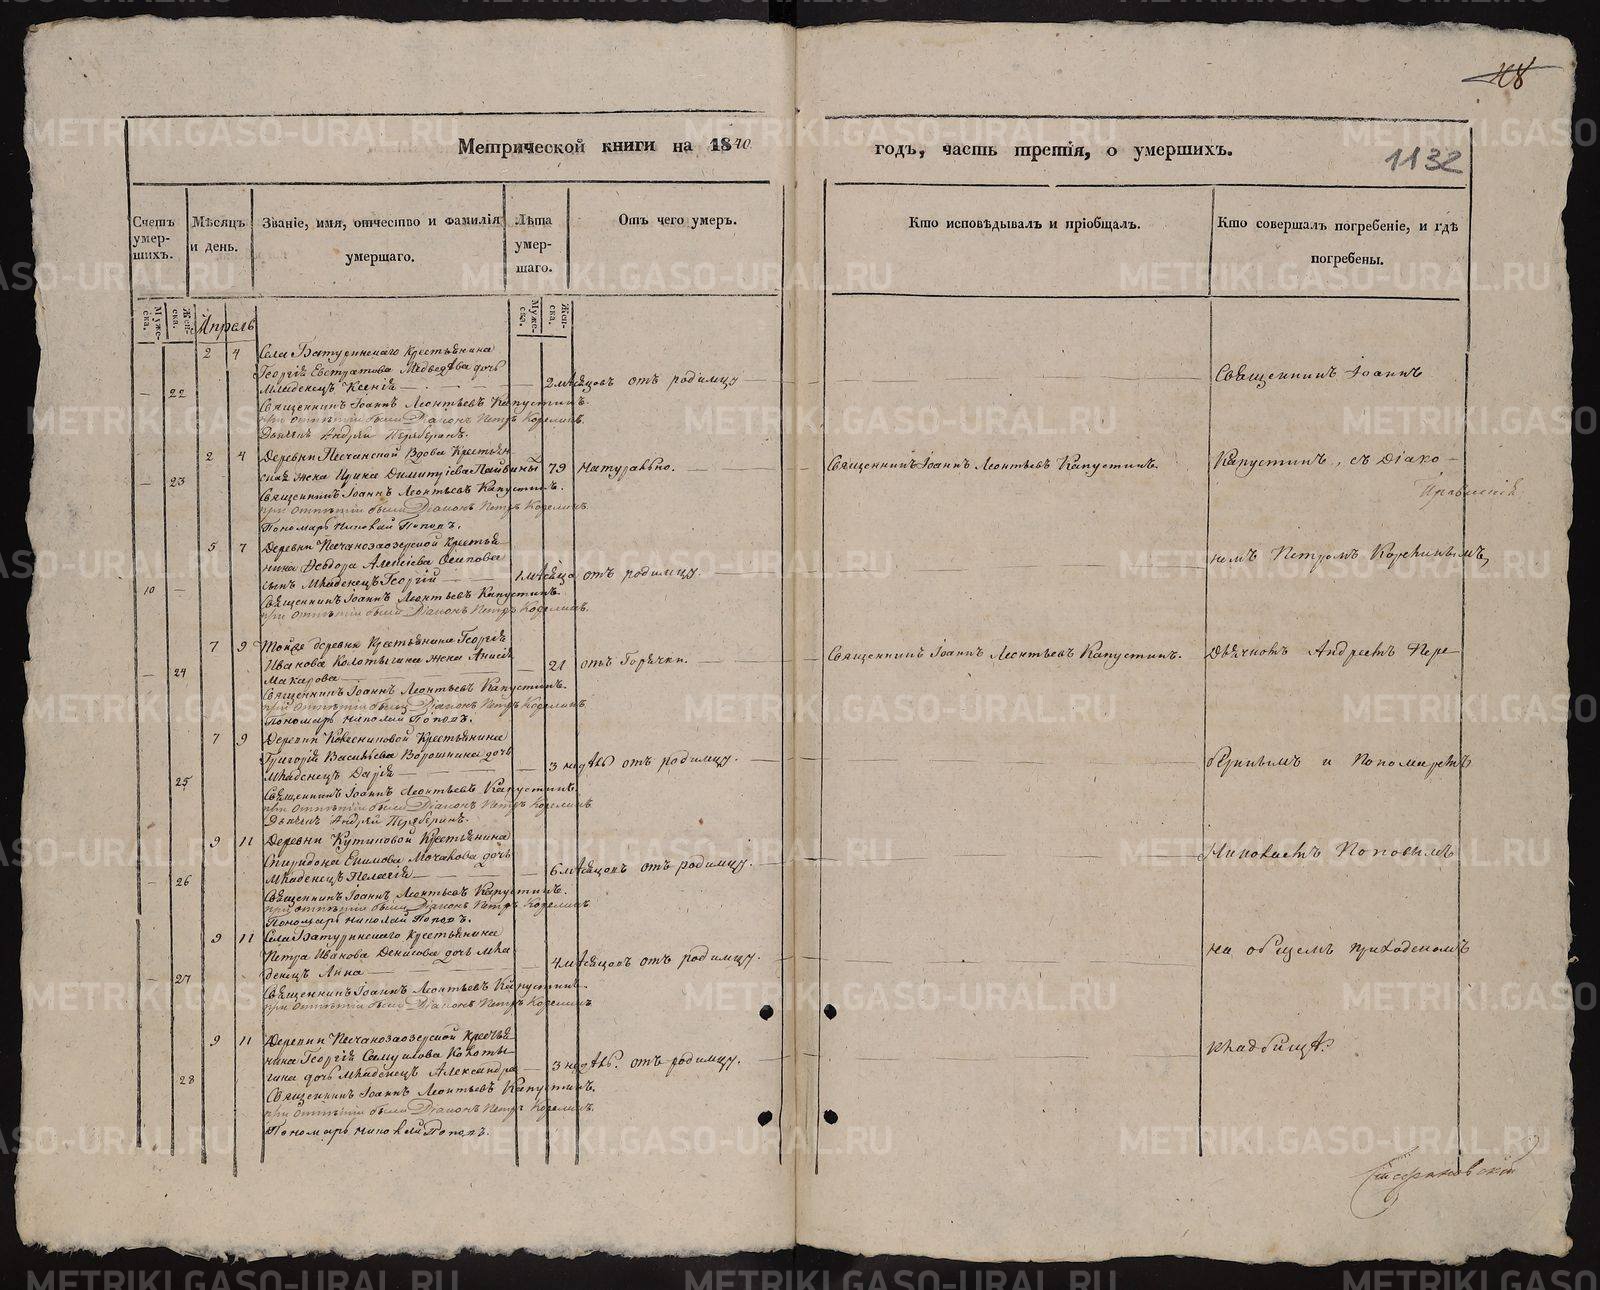 48
Метрической книги на 1840
годъ, часть третія, о умершихъ.
1132
Счетъ умер-шихъ.
Мѣсяцъ и день.
Званіе, имя, отчество и фамилія умершаго.
Лѣта умер-шаго.
Отъ чего умеръ.
Кто исповѣдывалъ и пріобщалъ.
Кто совершалъ погребеніе, и гдѣ погребены.
Муже-ска.
Жен-ска.
Апрель
Муже-ска.
Жен-ска.
2 4 Села Батуринскаго Крестьянина
Георгія Евстратова Медведѣва дочь
22 Младенецъ Ксенія 2 мѣсяцовъ отъ родимцу
Священникъ Іоаннъ Леонтьевъ Капустинъ.
при отпѣтіи были Діаконъ Петръ Корелинъ
Дьячекъ Андрей
2 4 Деревни Песчанской Вдова Крестьян
23 ская жена Ирина Димитріева 79 натурально.
Священникъ Іоаннъ Леонтьевъ Капустинъ.
Священникъ Іоаннъ Леонтьевъ Капустинъ.
при отпѣтіи были Діаконъ Петръ Корелинъ
Пономарь Николай Поповъ.
5 7 Деревни Песчанозаозерской Крестья
нина Ѳеодора Алексіева Осипова
10 сынъ Младенецъ Георгій 1 мѣсяца отъ родимцу.
Священникъ Іоаннъ Леонтьевъ Капустинъ.
при отпѣтіи были Діаконъ Петръ Корелинъ
7 9 Тойже деревни Крестьянина Георгія
Иванова Колотыгина жена Анисія
24 Макарова 21 отъ Горячки.
Священникъ Іоаннъ Леонтьевъ Капустинъ.
Священникъ Іоаннъ Леонтьевъ Капустинъ.
при отпѣтіи были Діаконъ Петръ Корелинъ
Пономарь Николай Поповъ.
7 9 Деревни Колесниковой Крестьянина
Григорія Васильева Ворошнина дочь
25 Младенецъ Дарія 3 недѣль отъ родимцу.
Священникъ Іоаннъ Леонтьевъ Капустинъ.
при отпѣтіи были Діаконъ Петръ Корелинъ
Дьячекъ Андрей
9 11 Деревни Кутиковой Крестьянина
Спиридона Екимова Мочалова дочь
26 Младенецъ Пелагія 6 мѣсяцовъ отъ родимцу.
Священникъ Іоаннъ Леонтьевъ Капустинъ.
при отпѣтіи были Діаконъ Петръ Корелинъ
Пономарь Николай Поповъ.
9 11 Села Батуринскаго Крестьянина
Петра Иванова Денисова дочь мла
27 денецъ Анна 4 мѣсяцовъ отъ родимцу.
Священникъ Іоаннъ Леонтьевъ Капустинъ.
при отпѣтіи были Діаконъ Петръ Корелинъ
9 11 Деревни Песчанозаозерской Крестья
нина Георгія Самуилова Колоты
28 гина дочь Младенецъ Александра 3 недѣль. отъ родимцу.
Священникъ Іоаннъ Леонтьевъ Капустинъ.
при отпѣтіи были Діаконъ Петръ Корелинъ.
Пономарь Николай Поповъ.
Священникъ Іоаннъ
Капустинъ, съ Діако
номъ Петромъ Корелинымъ,
Дьячкомъ Андреемъ
и Пономаремъ
Николаемъ Поповымъ
на общемъ приходскомъ
кладбищѣ.
METRIKI.GASO-URAL.RU